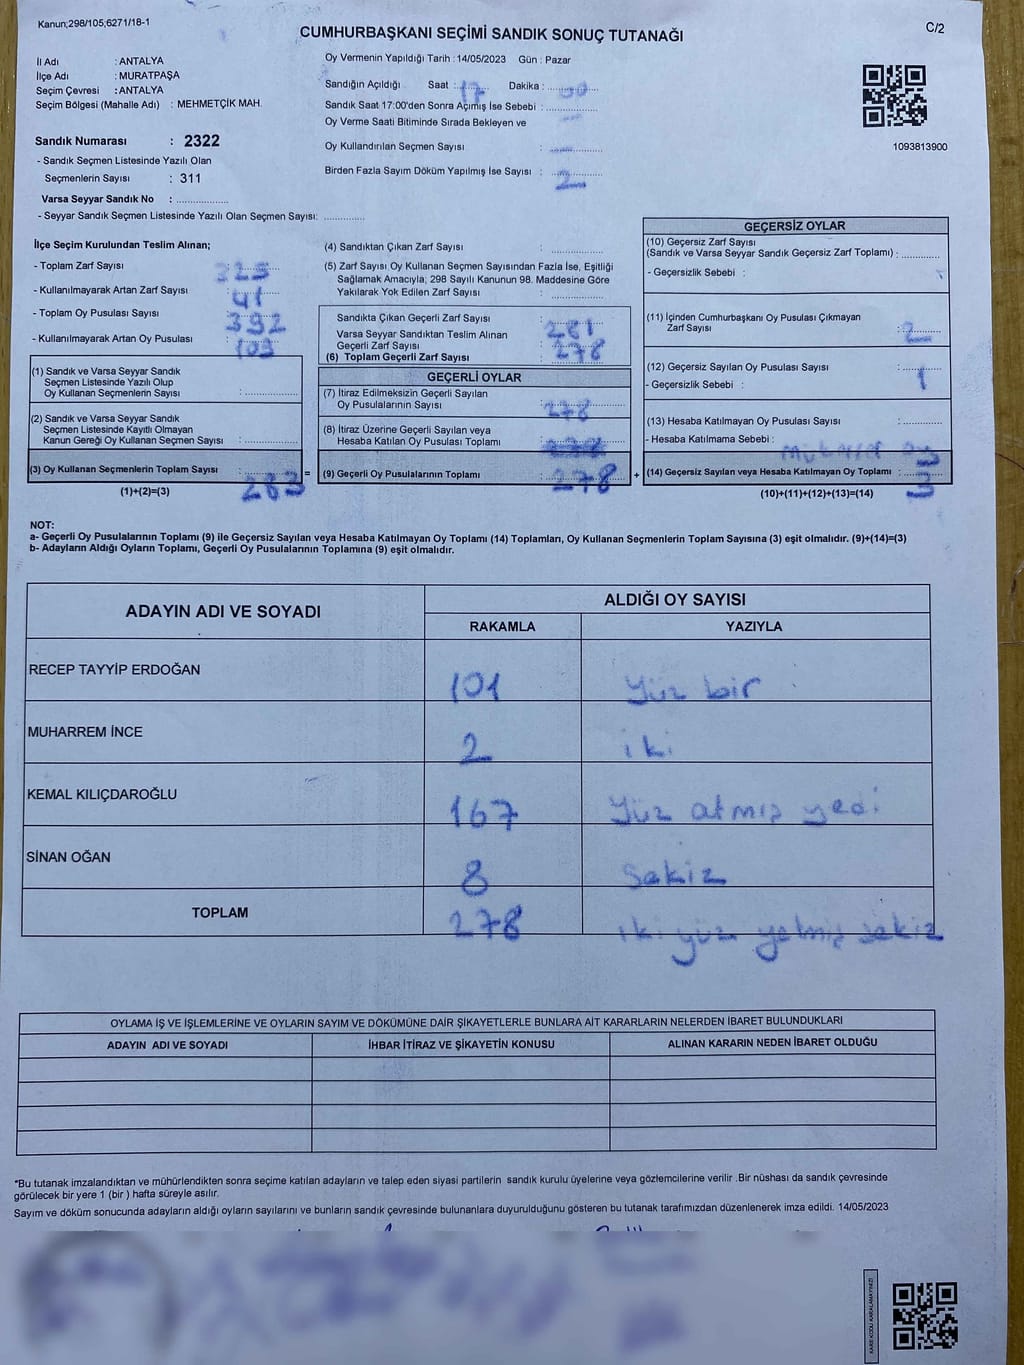 Kanun;298/105;6271/18-1
CUMHURBAŞKANI SEÇİMİ SANDIK SONUÇ TUTANAĞI
C/2
İl Adı : ANTALYA
İlçe Adı : MURATPAŞA
Seçim Çevresi : ANTALYA
Seçim Bölgesi (Mahalle Adı) : MEHMETÇİK MAH.
Sandık Numarası : 2322
- Sandık Seçmen Listesinde Yazılı Olan
Seçmenlerin Sayısı : 311
Varsa Seyyar Sandık No : ....................
- Seyyar Sandık Seçmen Listesinde Yazılı Olan Seçmen Sayısı: ..............
Oy Vermenin Yapıldığı Tarih : 14/05/2023 Gün : Pazar
Sandığın Açıldığı Saat : 17 Dakika : 00
Sandık Saat 17:00'den Sonra Açımış İse Sebebi :
Oy Verme Saati Bitiminde Sırada Bekleyen ve
Oy Kullandırılan Seçmen Sayısı : —
Birden Fazla Sayım Döküm Yapılmış İse Sayısı : 2
1093813900
İlçe Seçim Kurulundan Teslim Alınan;
- Toplam Zarf Sayısı : 325
- Kullanılmayarak Artan Zarf Sayısı : 41
- Toplam Oy Pusulası Sayısı : 392
- Kullanılmayarak Artan Oy Pusulası : 109
(1) Sandık ve Varsa Seyyar Sandık
Seçmen Listesinde Yazılı Olup
Oy Kullanan Seçmenlerin Sayısı :
(2) Sandık ve Varsa Seyyar Sandık
Seçmen Listesinde Kayıtlı Olmayan
Kanun Gereği Oy Kullanan Seçmen Sayısı :
(3) Oy Kullanan Seçmenlerin Toplam Sayısı : 283
(1)+(2)=(3)
(4) Sandıktan Çıkan Zarf Sayısı :
(5) Zarf Sayısı Oy Kullanan Seçmen Sayısından Fazla İse, Eşitliği
Sağlamak Amacıyla; 298 Sayılı Kanunun 98. Maddesine Göre
Yakılarak Yok Edilen Zarf Sayısı :
Sandıkta Çıkan Geçerli Zarf Sayısı : 281
Varsa Seyyar Sandıktan Teslim Alınan
Geçerli Zarf Sayısı :
(6) Toplam Geçerli Zarf Sayısı : 278
GEÇERLİ OYLAR
(7) İtiraz Edilmeksizin Geçerli Sayılan
Oy Pusulalarının Sayısı : 278
(8) İtiraz Üzerine Geçerli Sayılan veya
Hesaba Katılan Oy Pusulası Toplamı :
= (9) Geçerli Oy Pusulalarının Toplamı : 278 +
GEÇERSİZ OYLAR
(10) Geçersiz Zarf Sayısı
(Sandık ve Varsa Seyyar Sandık Geçersiz Zarf Toplamı) :
- Geçersizlik Sebebi :
(11) İçinden Cumhurbaşkanı Oy Pusulası Çıkmayan
Zarf Sayısı : 2
(12) Geçersiz Sayılan Oy Pusulası Sayısı : 1
- Geçersizlik Sebebi :
(13) Hesaba Katılmayan Oy Pusulası Sayısı :
- Hesaba Katılmama Sebebi :
(14) Geçersiz Sayılan veya Hesaba Katılmayan Oy Toplamı : 3
(10)+(11)+(12)+(13)=(14)
NOT:
a- Geçerli Oy Pusulalarının Toplamı (9) ile Geçersiz Sayılan veya Hesaba Katılmayan Oy Toplamı (14) Toplamları, Oy Kullanan Seçmenlerin Toplam Sayısına (3) eşit olmalıdır. (9)+(14)=(3)
b- Adayların Aldığı Oyların Toplamı, Geçerli Oy Pusulalarının Toplamına (9) eşit olmalıdır.
ADAYIN ADI VE SOYADI
ALDIĞI OY SAYISI
RAKAMLA YAZIYLA
RECEP TAYYİP ERDOĞAN 101 Yüz bir
MUHARREM İNCE 2 iki
KEMAL KILIÇDAROĞLU 167 Yüz atmış yedi
SİNAN OĞAN 8 Sekiz
TOPLAM 278 iki yüz yetmiş sekiz
OYLAMA İŞ VE İŞLEMLERİNE VE OYLARIN SAYIM VE DÖKÜMÜNE DAİR ŞİKAYETLERLE BUNLARA AİT KARARLARIN NELERDEN İBARET BULUNDUKLARI
ADAYIN ADI VE SOYADI İHBAR İTİRAZ VE ŞİKAYETİN KONUSU ALINAN KARARIN NEDEN İBARET OLDUĞU
*Bu tutanak imzalandıktan ve mühürlendikten sonra seçime katılan adayların ve talep eden siyasi partilerin sandık kurulu üyelerine veya gözlemcilerine verilir .Bir nüshası da sandık çevresinde
görülecek bir yere 1 (bir ) hafta süreyle asılır.
Sayım ve döküm sonucunda adayların aldığı oyların sayılarını ve bunların sandık çevresinde bulunanlara duyurulduğunu gösteren bu tutanak tarafımızdan düzenlenerek imza edildi. 14/05/2023
KARE KODU KARALAMAYINIZ!